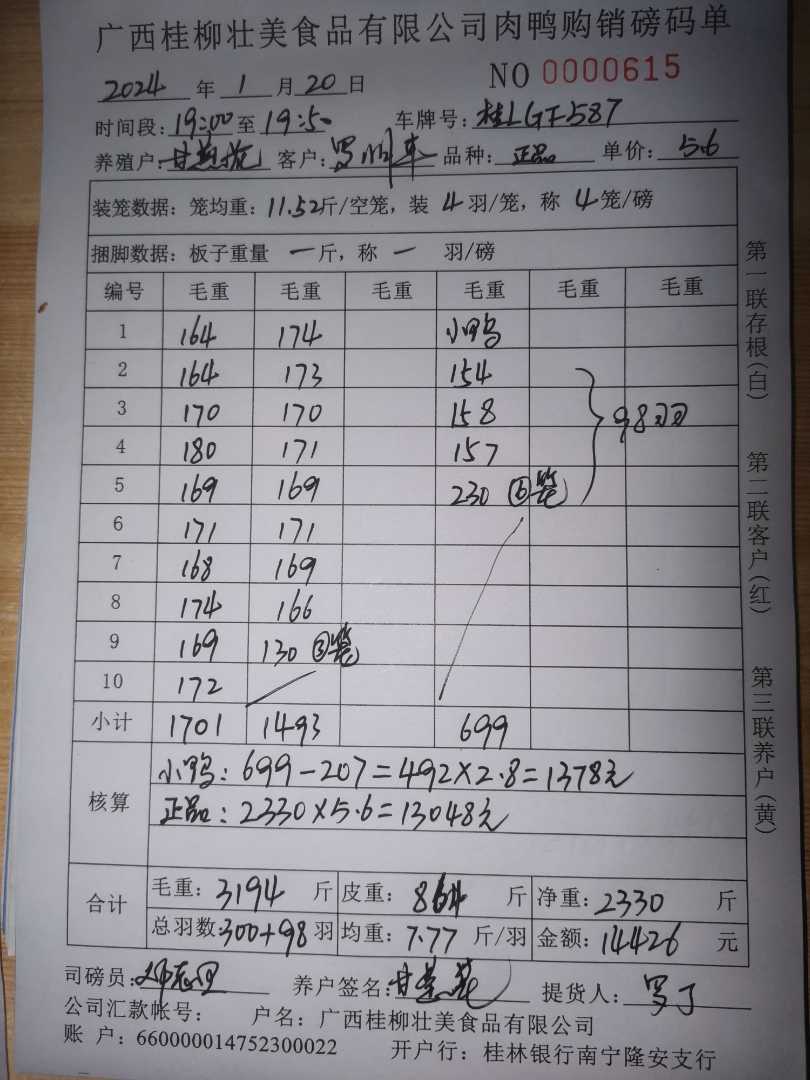 广西桂柳壮美食品有限公司肉鸭购销磅码单
2024 年 1 月 20 日 NO 0000615
时间段:19:00 至 19:50 车牌号: 桂LGF587
养殖户: 客户: 品种: 正品 单价: 5.6
装笼数据: 笼均重: 11.52斤/空笼, 装 4 羽/笼, 称 4 笼/磅
捆脚数据: 板子重量 一 斤, 称 一 羽/磅
编号 毛重 毛重 毛重 毛重 毛重 毛重
1 164 174 小鸭
2 164 173 154
3 170 170 158 98羽
4 180 171 157
5 169 169 230 ⑥笼
6 171 171
7 168 169
8 174 166
9 169 130 ③笼
10 172
小计 1701 1493 699
核算
小鸭: 699-207=492×2.8=1378元
正品: 2330×5.6=13048元
合计
毛重: 3194 斤 皮重: 864 斤 净重: 2330 斤
总羽数: 300+98 羽 均重: 7.77 斤/羽 金额: 14426 元
司磅员: 养户签名: 提货人:
公司汇款帐号: 户名: 广西桂柳壮美食品有限公司
账 户: 660000014752300022 开户行: 桂林银行南宁隆安支行
第一联存根(白)
第二联客户(红)
第三联养户(黄)